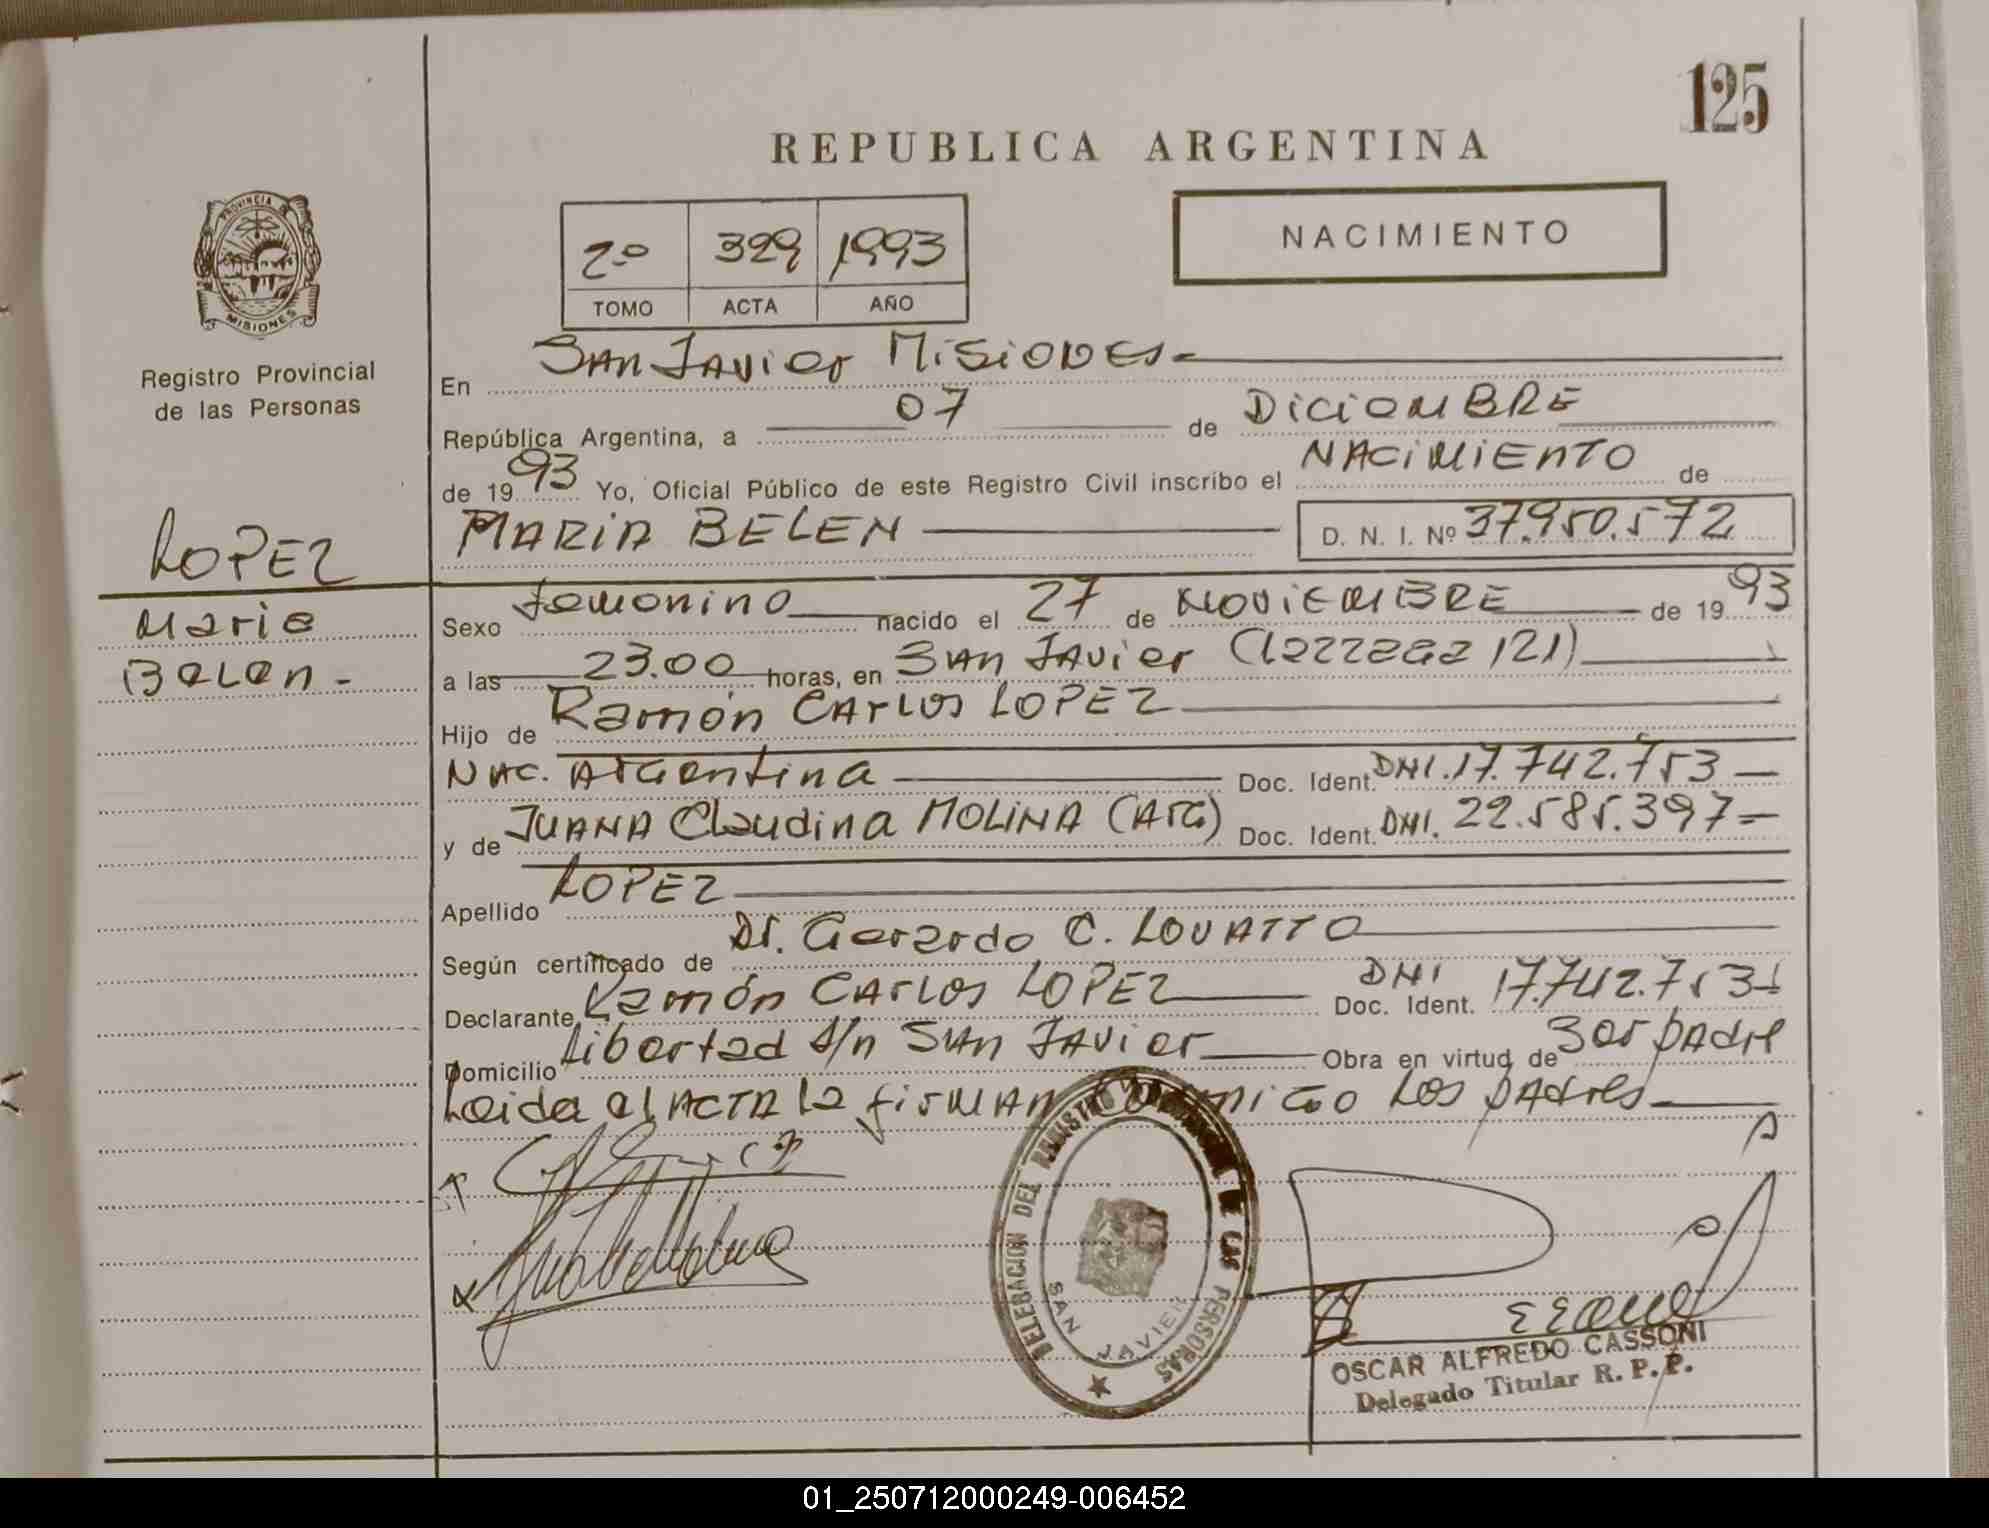 125
REPUBLICA ARGENTINA
PROVINCIA DE
MISIONES
Registro Provincial
de las Personas
2º 329 1993
TOMO ACTA AÑO
NACIMIENTO
En San Javier Misiones
República Argentina, a 07 de DiciemBRE
de 1993 Yo, Oficial Público de este Registro Civil inscribo el NACiMiENTO de
MARIA BELEN D. N. I. Nº 37.950.572
LOPEZ
Maria
Belen -
Sexo femenino nacido el 27 de NoviEMBRE de 1993
a las 23.00 horas, en San Javier (121)
Hijo de Ramón Carlos LOPEZ
Nac. Argentina Doc. Ident. DNI. 17.742.753
y de JUANA Claudina MOLINA (Arg) Doc. Ident. DNI. 22.585.397
Apellido LOPEZ
Según certificado de Dr. Gerardo C. LOVATTO
Declarante Ramón Carlos LOPEZ Doc. Ident. DNI 17.742.753
Domicilio Libertad s/n San Javier Obra en virtud de ser padre
Leida el ACTA la firman conmigo los padres
DELEGACION DEL REGISTRO PROVINCIAL DE LAS PERSONAS
SAN JAVIER
OSCAR ALFREDO CASSONI
Delegado Titular R. P. P.
01_250712000249-006452